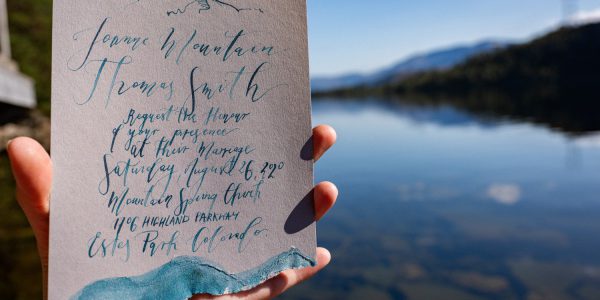 Joanne Mountain
Thomas Smith
Request the Honour
of your presence
at their Marriage
Saturday August 26,
Mountain Spring Church
HIGHLAND PARKWAY
Estes Park Colorado